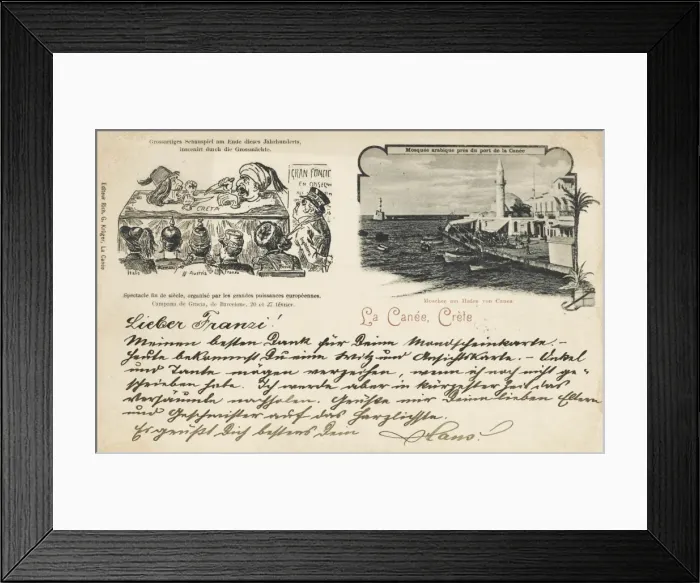 Grossartiges Schauspiel am Ende dieses Jahrhunderts,
inscenirt durch die Grossmächte.
GRAN FONDE
CRETA
Italie
Austria
Editeur Rich. G. Krüger, La Canée
Spectacle fin de siècle, organisé par les grandes puissances européennes.
Campana de Gracia, de Barcelone, 20 et 27 février.
Mosquée arabique près du port de la Canée
Moschee am Hafen von Canea
La Canée, Crète
Lieber Franzi!
Meinen besten Dank für Deine Mondscheinkarte. –
Heute bekommst Du eine Witz und Ansichtskarte. – Onkel
und Tante mögen verzeihen, wenn ich noch nicht ge-
schrieben habe. Ich werde aber in kürzester Zeit das
Versäumte nachholen. Grüsse mir Deine lieben Eltern
und Geschwister auf das Herzlichste.
Es grüßt Dich bestens Dein Hans!